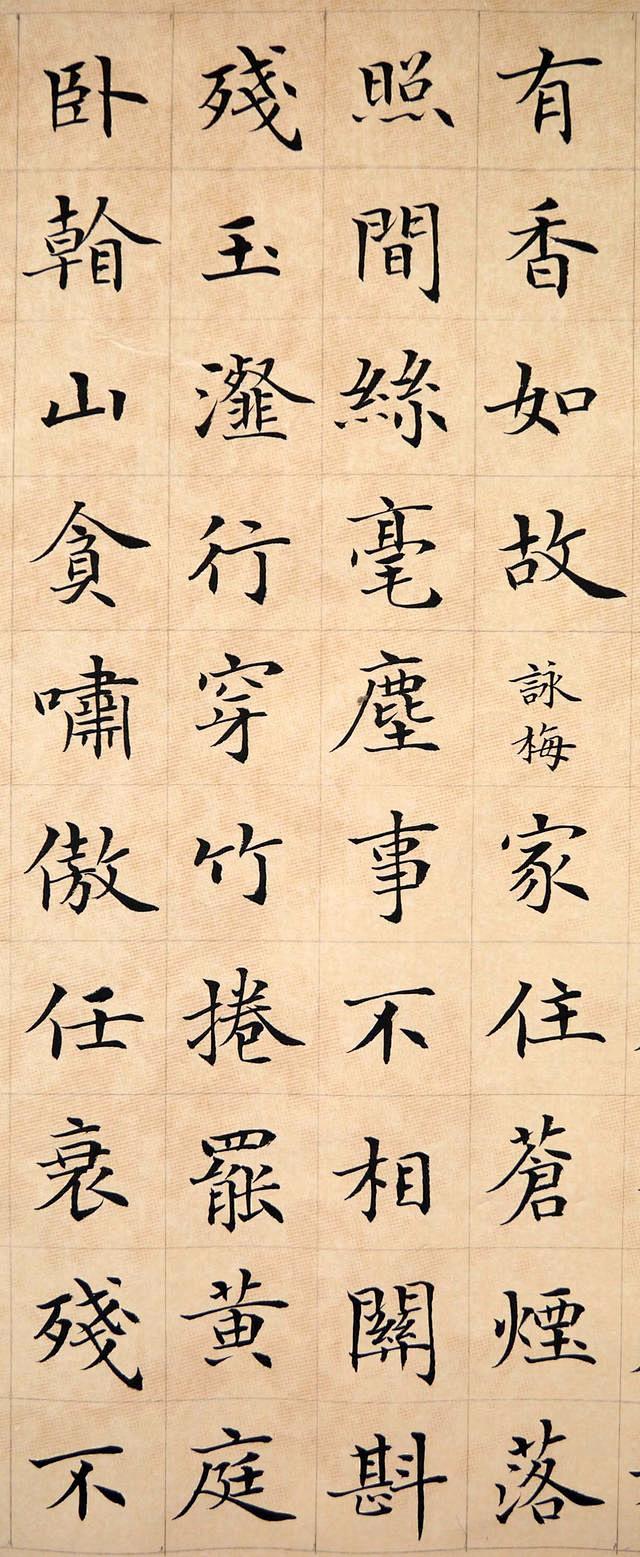 有香如故詠梅家住蒼煙落
照間絲毫塵事不相關斟
殘玉瀣行穿竹捲罷黃庭
卧看山貪嘯傲任衰殘不